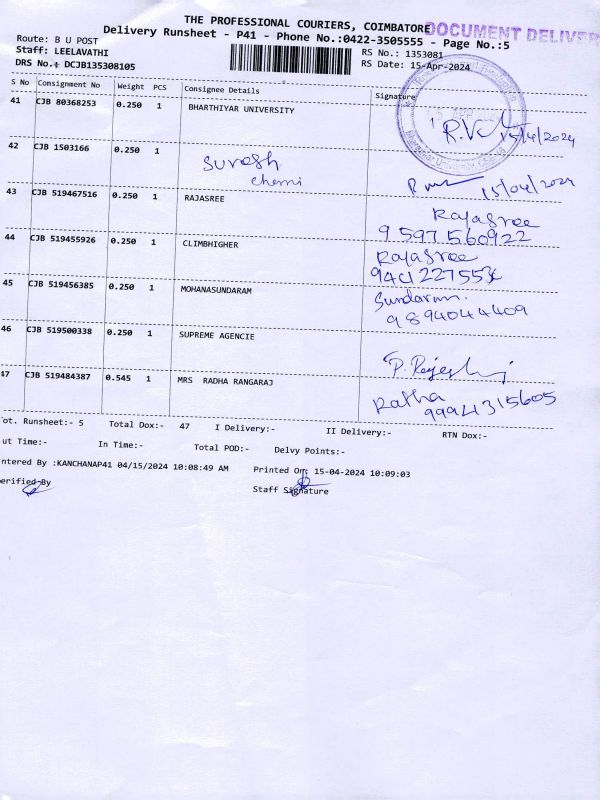 THE PROFESSIONAL COURIERS, COIMBATORE
DOCUMENT DELIVER
Delivery Runsheet - P41 - Phone No.:0422-3505555 - Page No.:5
Route: B U POST
RS No.: 1353081
Staff: LEELAVATHI
RS Date: 15-Apr-2024
DRS No.: DCJB135308105
S No Consignment No Weight PCS Consignee Details Signature
41 CJB 80368253 0.250 1 BHARTHIYAR UNIVERSITY
15/4/2024
42 CJB 1503166 0.250 1 Suresh
15/04/2024
43 CJB 519467516 0.250 1 RAJASREE Rajasree
9597560922
44 CJB 519455926 0.250 1 CLIMBHIGHER Rajasree
45 CJB 519456385 0.250 1 MOHANASUNDARAM Sundaram.
9894044409
46 CJB 519500338 0.250 1 SUPREME AGENCIE
47 CJB 519484387 0.545 1 MRS RADHA RANGARAJ Ratha
99943 15605
ot. Runsheet:- 5 Total Dox:- 47 I Delivery:- II Delivery:- RTN Dox:-
ut Time:- In Time:- Total POD:- Delvy Points:-
ntered By :KANCHANAP41 04/15/2024 10:08:49 AM Printed On: 15-04-2024 10:09:03
erified By
Staff Signature